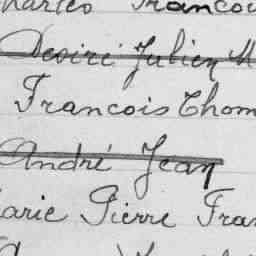 Charles Francois
Desiré Julien M
Francois Thom
André Jean
Marie Pierre Fran